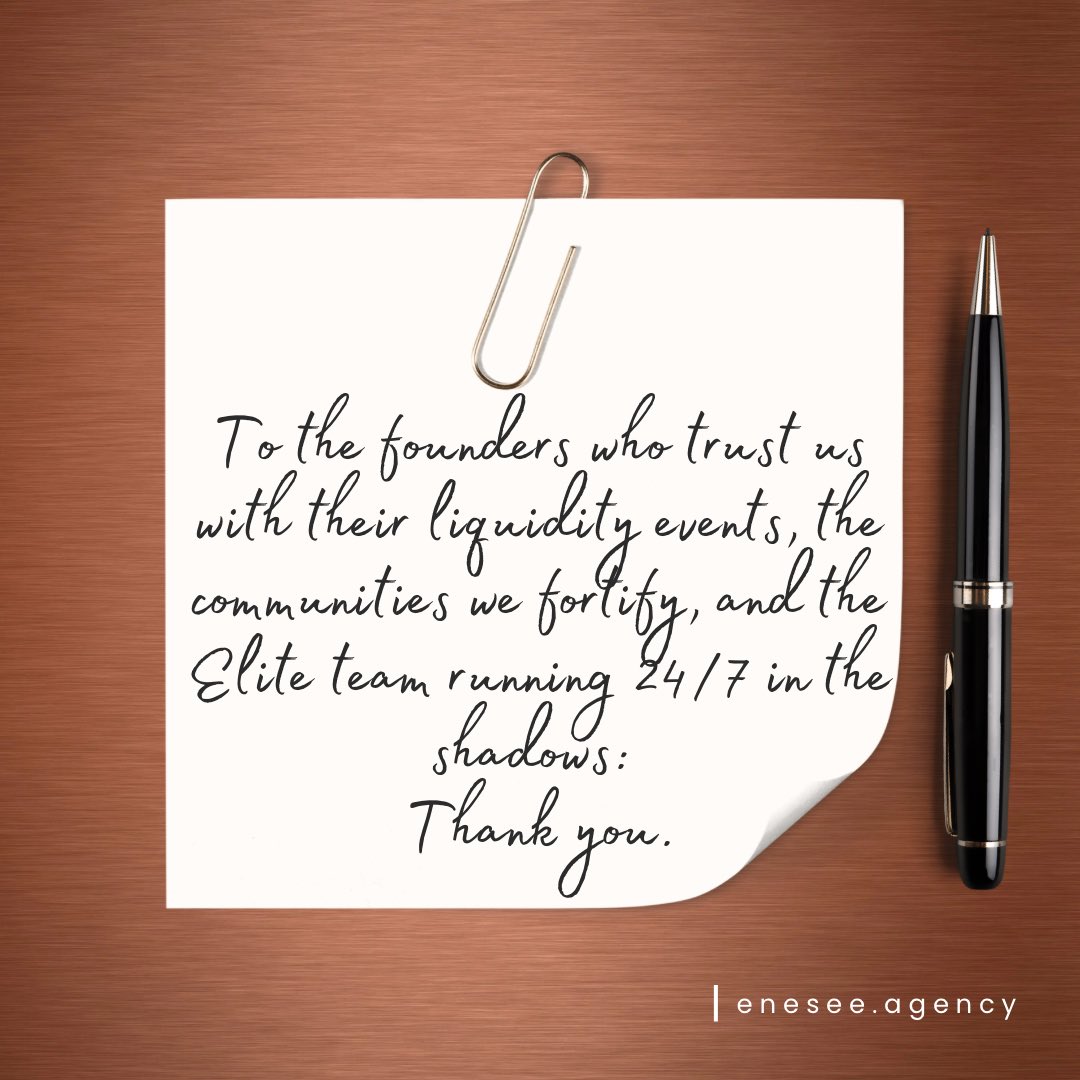 To the founders who trust us
with their liquidity events, the
communities we fortify, and the
Elite team running 24/7 in the
shadows:
Thank you.
| enesee.agency